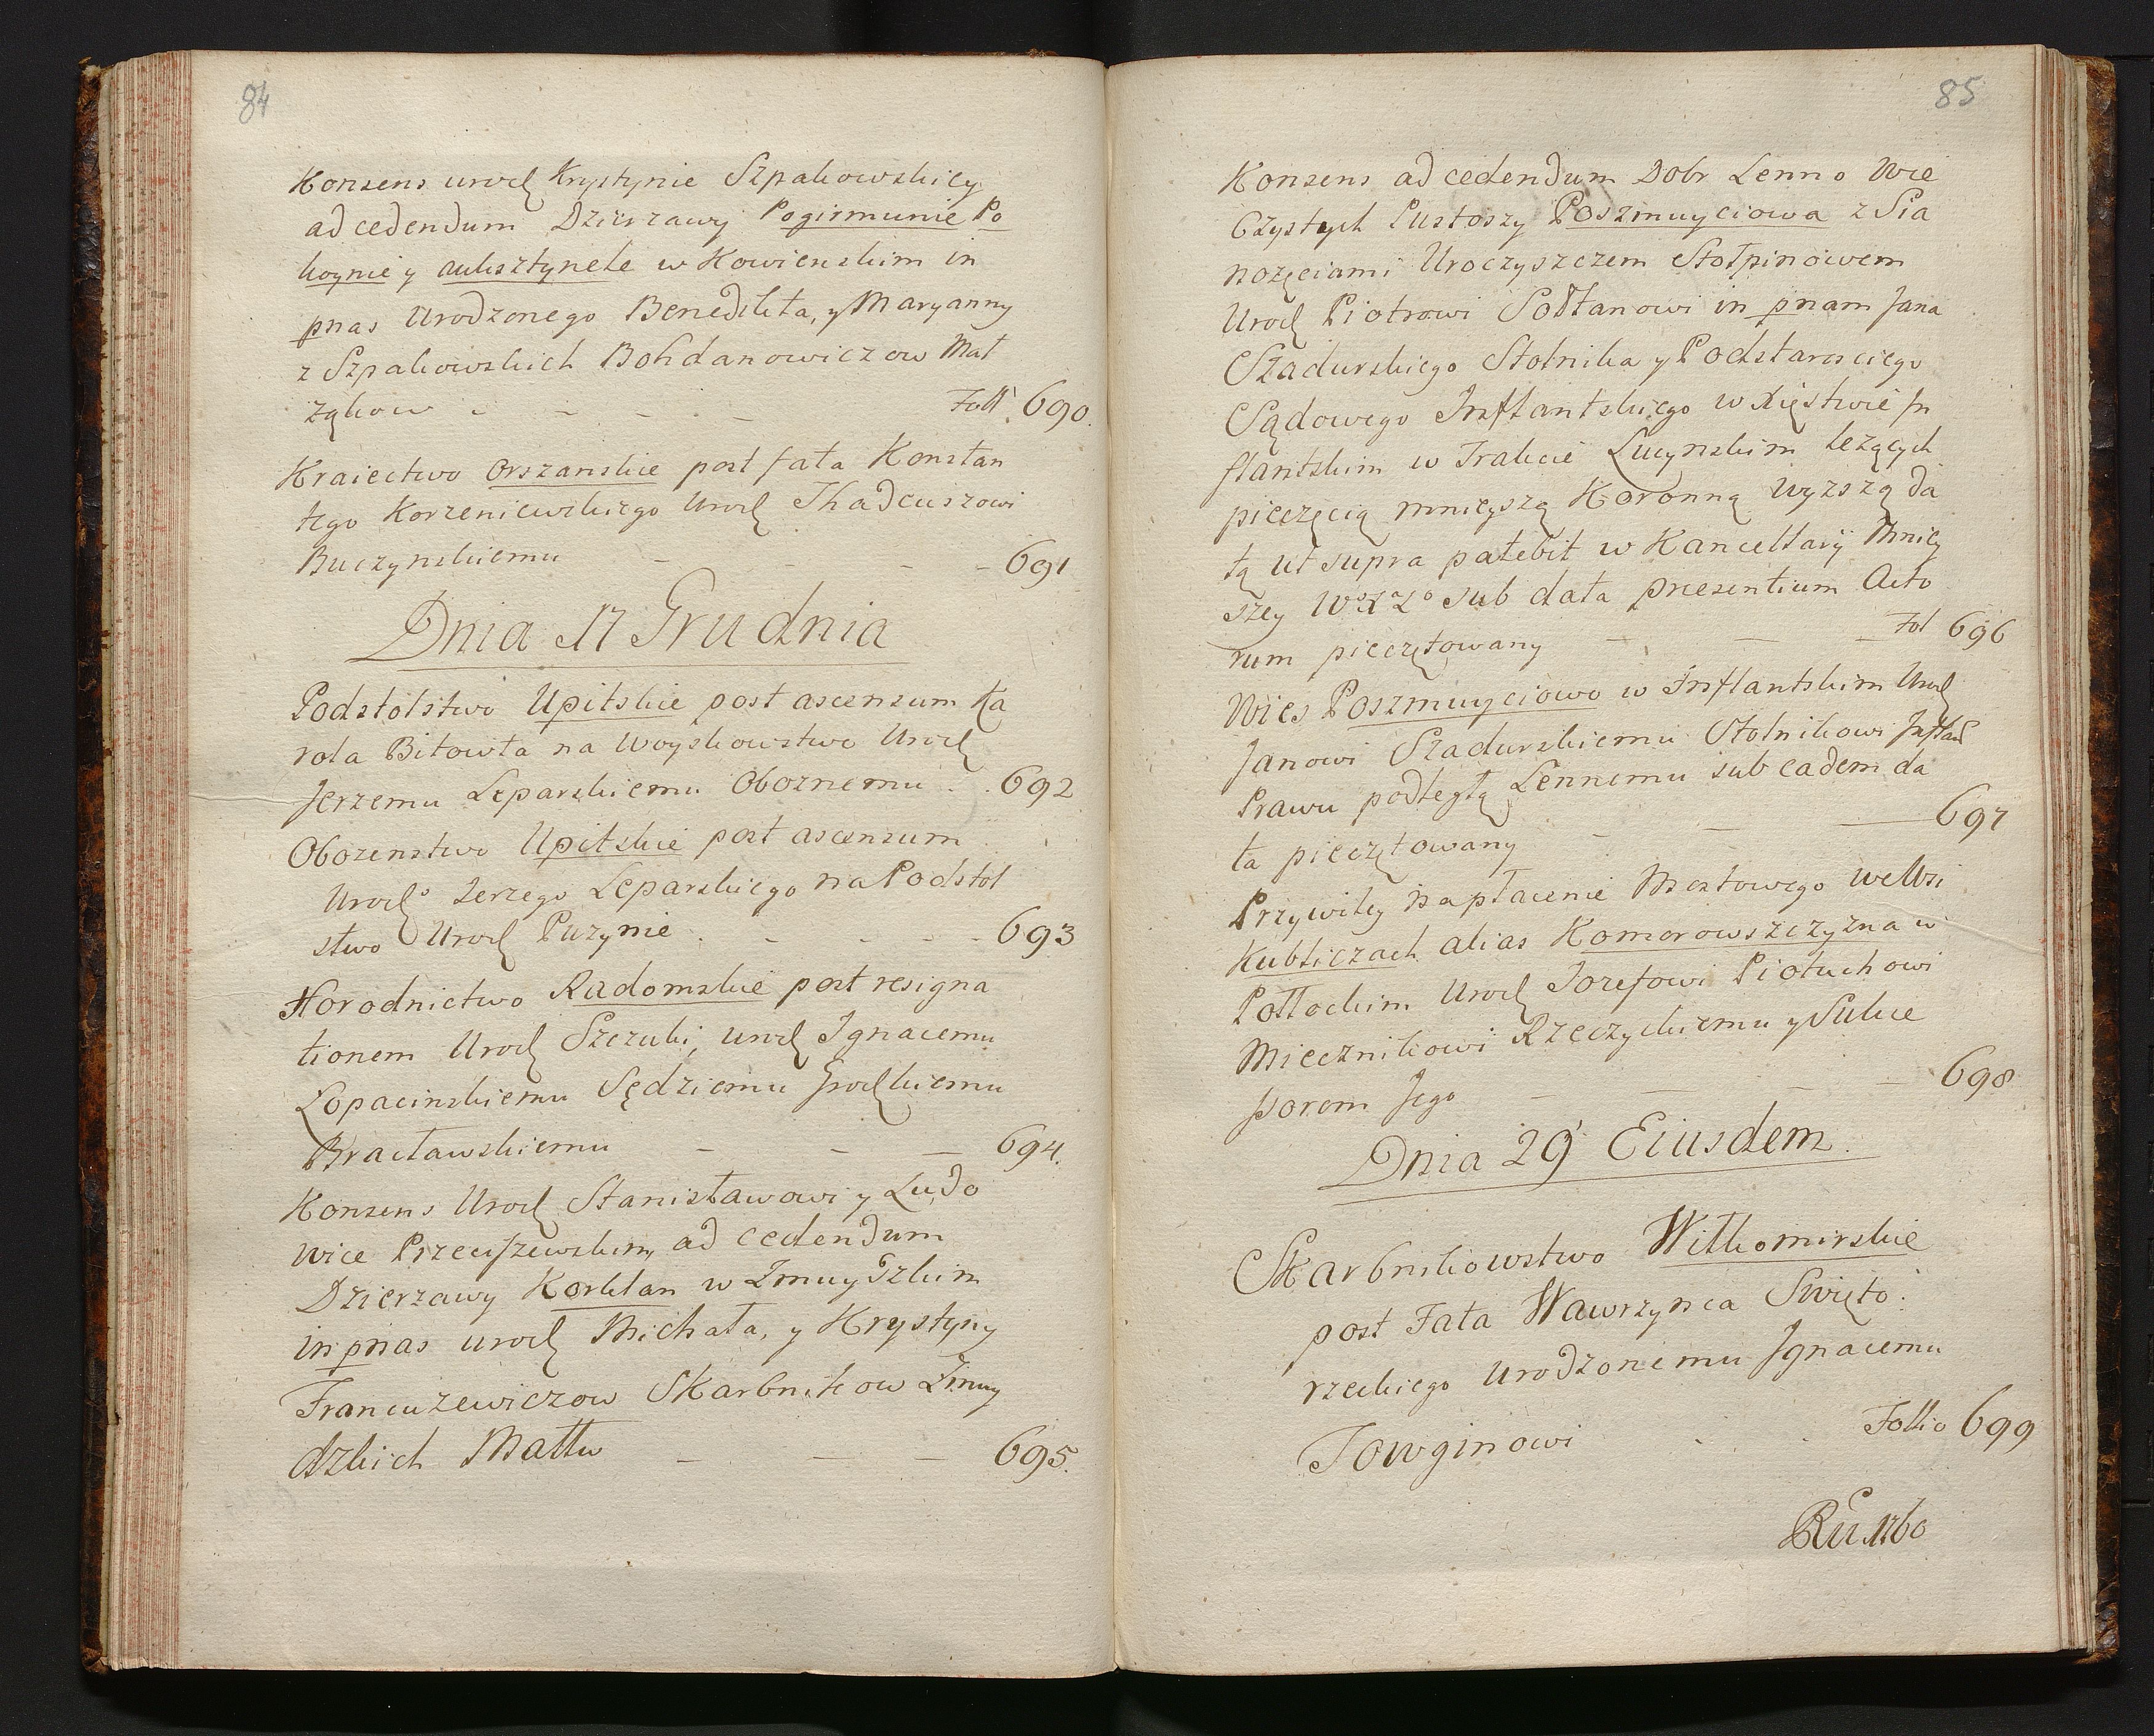 84
Konsens urodz Krystynie Szpakowskiey
ad cedendum Dzierzawy Pogirmunie Po
koynie y auksztynele w Kowienskim in
pnas Urodzonego Benedikta, y Maryanny
z Szpakowskich Bohdanowiczow Mał
ząkow - - - - Foll 690.
Kraiectwo Orszanskie post fata Konstan
tego Korzeniewskiego Urodz Thadeuszowi
Buczynskiemu - - - - 691
Dnia 17 Grudnia
Podstolstwo Upitskie post ascensum Ka
rola Bitowta na Woyskowstwo Urodz
Jerzemu Leparskiemu Oboznemu . . 692
Obozenstwo Upitskie post ascensum
Urodzo Jerzego Leparskiego na Podstol
stwo Urodz Puzynie . - - - - 693
Horodnictwo Radomskie post resigna
tionem Urodz Szczuki, urodz Ignacemu
Łopacinskiemu Sędziemu grodzkiemu
Bracławskiemu - - - 694.
Konsens Urodz Stanisławowi y Ludo
wice Przeciszewskim ad cedendum
Dzierzawy Korklan w Zmuydzkim
in pnas urodz Michała, y Krystyny
Francuzewiczow Skarbnikow Zmuy
dzkich Małłw - - - 695.
85
Konsens ad cedendum Dobr Lenno Wie
czystych Pustoszy Poszmuyciowa z Sia
nozęciami Uroczyszczem Stołpinowem
Urodz Piotrowi Sołtanowi in pnam Jana
Szadurskiego Stolnika y Podstarosciego
Sądowego Inflantskiego w Xięstwie In
flantskim w Trakcie Lucynskim lezących
pieczęcią mnieyszą Koronną wyzszą da
tą ut supra patebit w Kancellaryi Mniey
szey WoXaLo sub data presentium Acto
rum pieczętowany - - - Fol 696
Wies Poszmuyciowo w Inflantskim Urodz
Janowi Szadurskiemu Stolnikowi Inflan
Prawu podległą Lennemu sub eadem da
ta pieczętowany - - - 697
Przywiley na płacenie Mostowego we Wsi
Kubliczach alias Komorowszczyzna w
Połłockim Urodz Jozefowi Piotuchowi
Miecznikowi Rzeczyckiemu y Sukce
ssorom Jego - - - - 698
Dnia 29 Eiusdem.
Skarbnikowstwo Wiłkomirskie
post Fata Wawrzynca Swięto:
rzeckiego Urodzonemu Ignacemu
Towginowi . . Follio 699